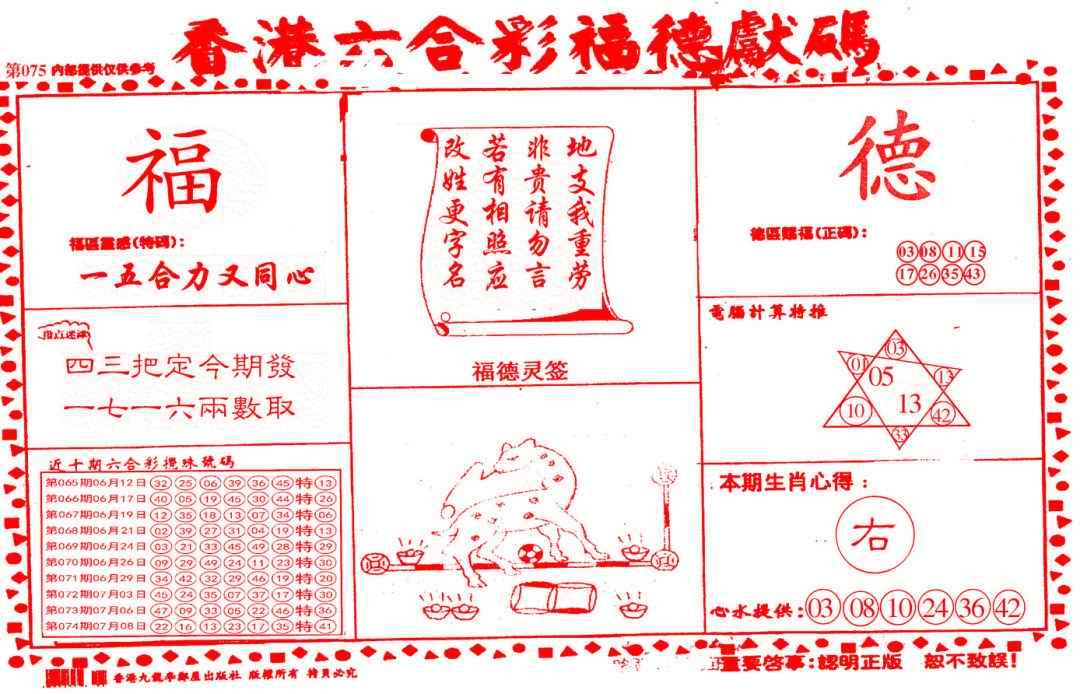 香港六合彩福德獻碼
第075 内部提供仅供参考
福
福區靈感(特碼):
一五合力又同心
指点迷津
四三把定今期發
一七一六兩數取
近十期六合彩攪珠號碼
第065期06月12日 32 25 06 39 36 45 特 13
第066期06月17日 40 05 19 45 30 44 特 26
第067期06月19日 12 35 18 13 07 34 特 06
第068期06月21日 02 39 27 31 04 19 特 13
第069期06月24日 03 21 33 45 49 28 特 29
第070期06月26日 09 29 49 24 11 23 特 30
第071期06月29日 34 42 32 29 46 19 特 20
第072期07月03日 45 24 35 07 37 17 特 30
第073期07月06日 47 09 33 05 22 46 特 36
第074期07月08日 22 16 13 23 17 35 特 41
地支我重劳
非贵请勿言
若有相照应
改姓更字名
福德灵签
德
德區賜福(正碼):
03 08 11 15
17 26 35 43
電腦計算特推
03
01 05 13
10 13 42
33
本期生肖心得:
右
心水提供: 03 08 10 24 36 42
香港九龍學鄰屋出版社 版權所有 特員必究
重要啓事:認明正版 恕不致誤!